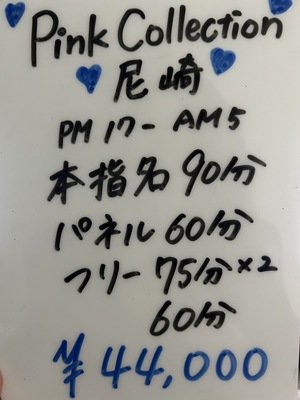 Pink Collection
尼崎
PM 17 - AM 5
本指名 90分
パネル 60分
フリー 75分×2
60分
¥44,000